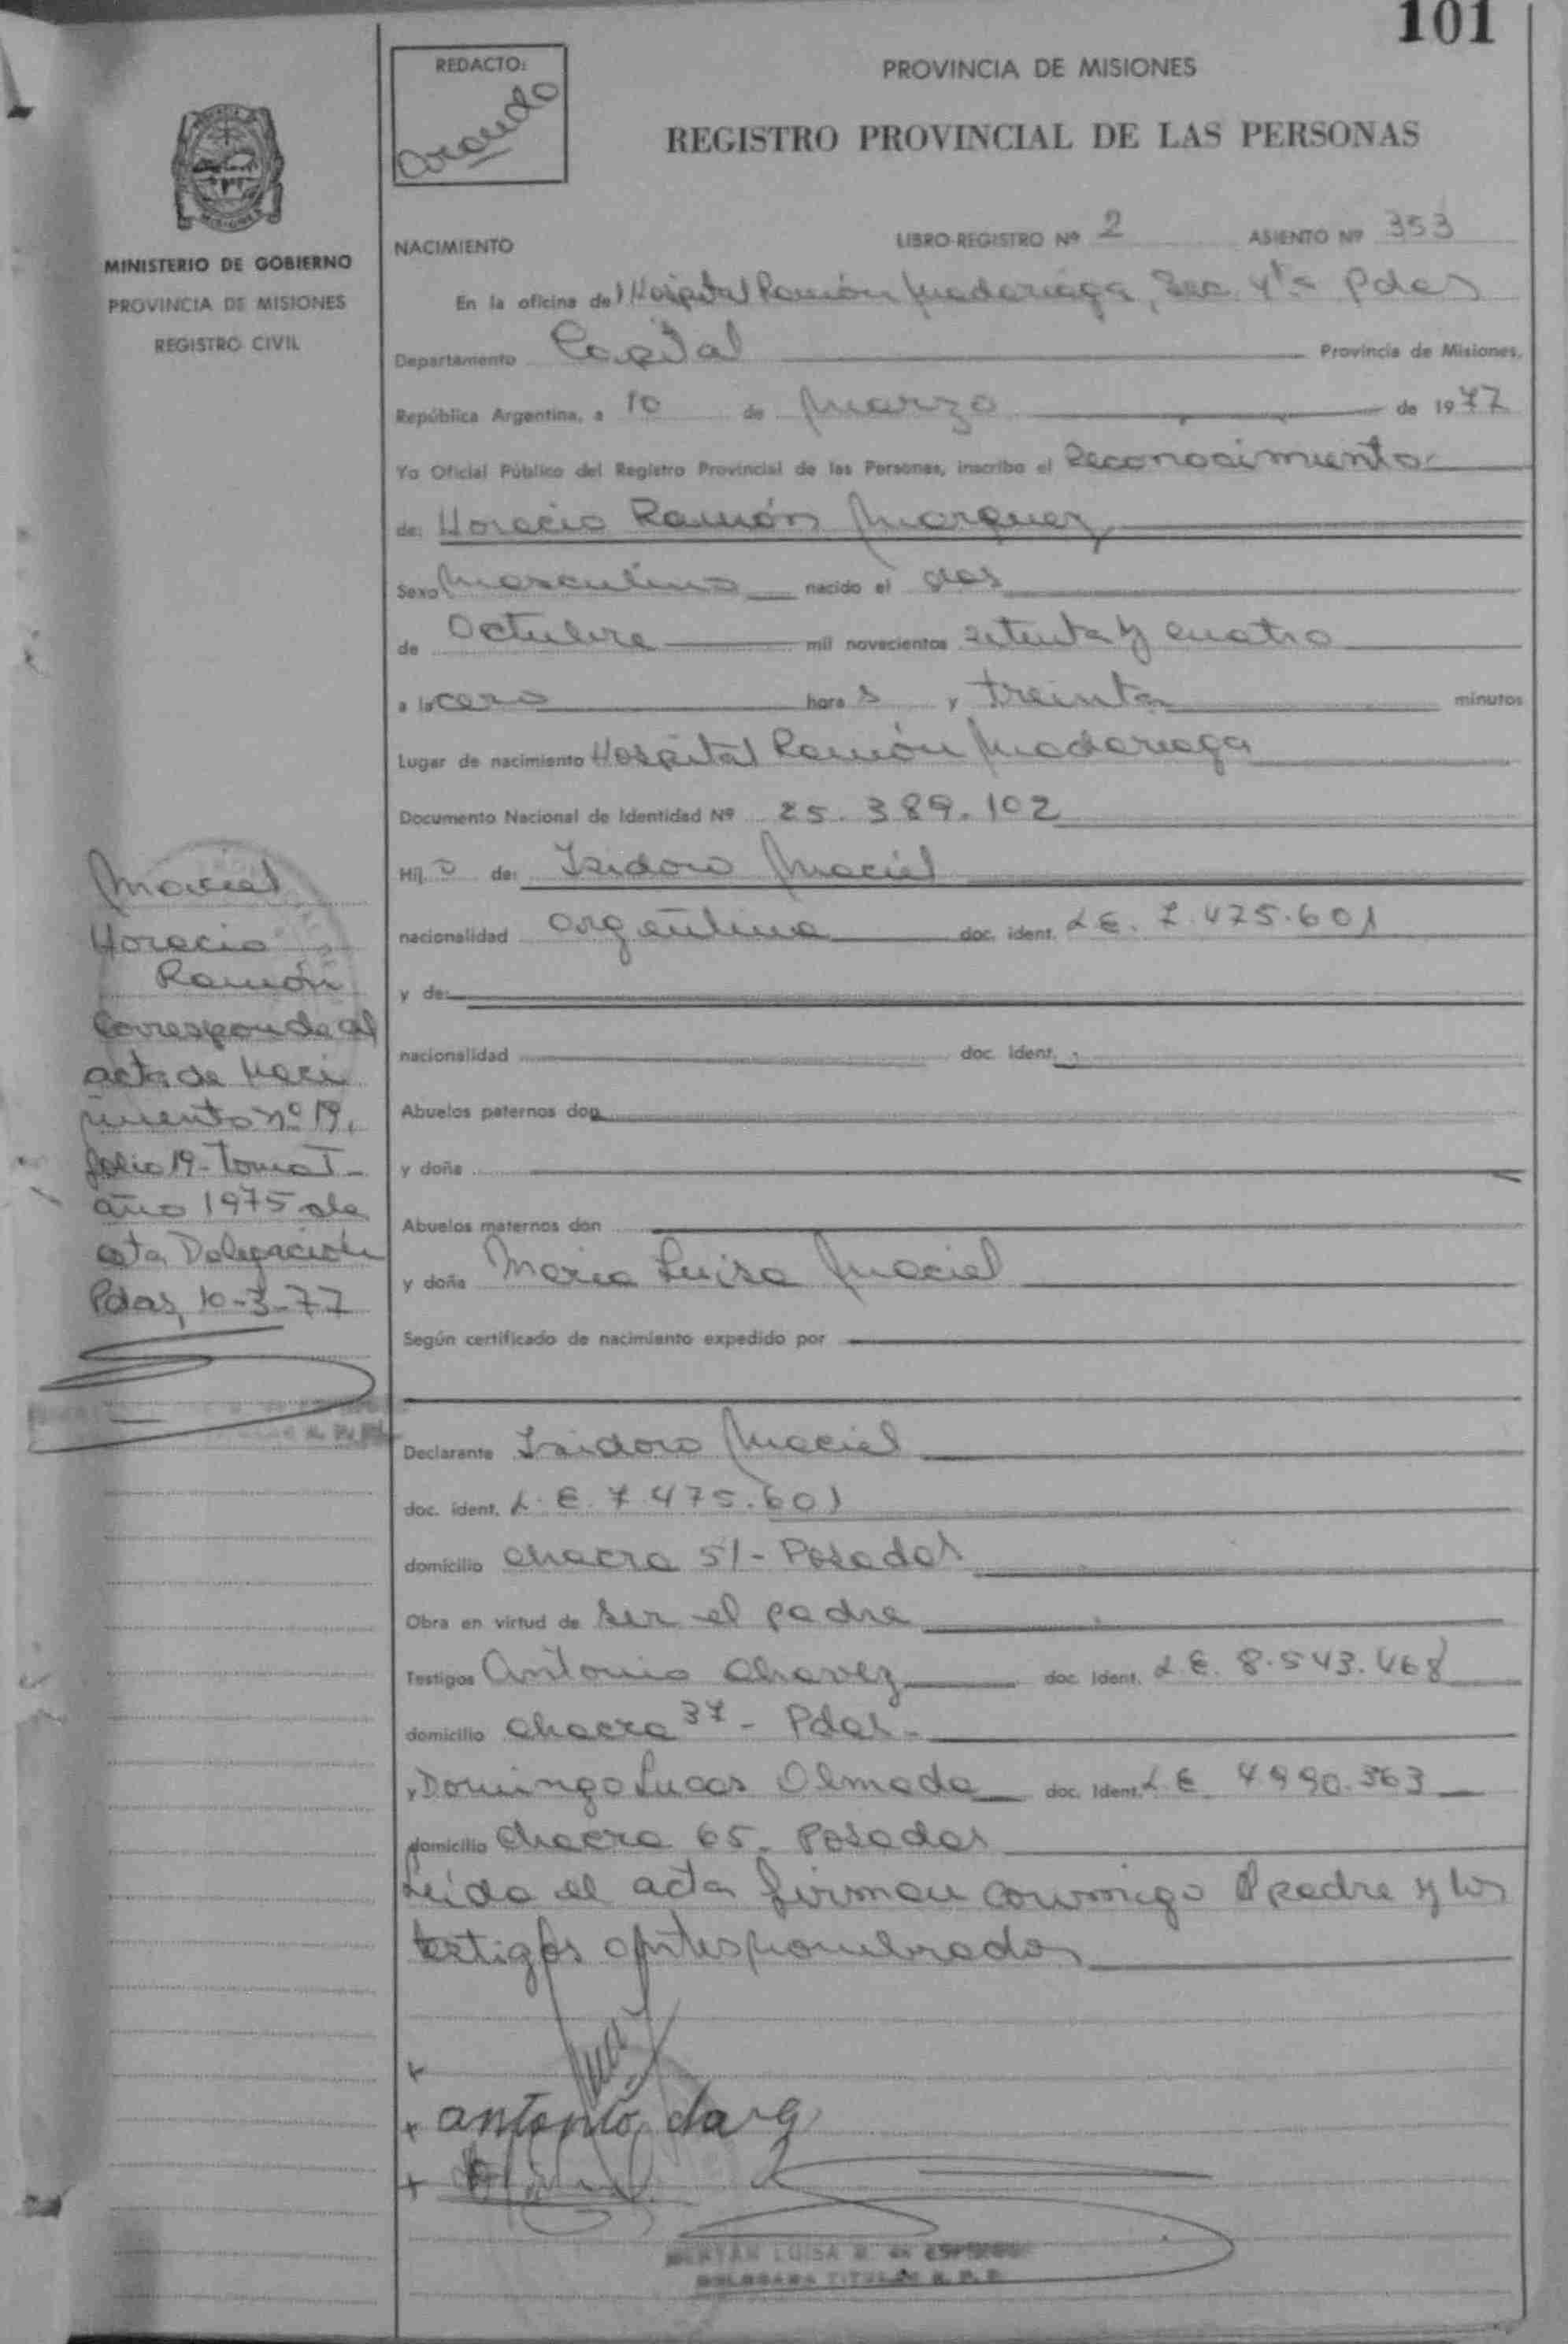 101
REDACTO:
PROVINCIA DE MISIONES
REGISTRO PROVINCIAL DE LAS PERSONAS
MINISTERIO DE GOBIERNO
PROVINCIA DE MISIONES
REGISTRO CIVIL
NACIMIENTO
LIBRO-REGISTRO Nº 2 ASIENTO Nº 353
En la oficina del Hospital Ramón Madariaga, Sec. 4ta Pdas
Departamento Capital Provincia de Misiones,
República Argentina, a 10 de Marzo de 1977
Yo Oficial Público del Registro Provincial de las Personas, inscribo el Reconocimiento
de: Horacio Ramón Marquez
Sexo Masculino nacido el dos
de Octubre mil novecientos setenta y cuatro
a la cero hora s y treinta minutos
Lugar de nacimiento Hospital Ramón Madariaga
Documento Nacional de Identidad Nº 25.389.102
Hij o de: Isidoro Maciel
nacionalidad argentina doc. ident. L.E. 7.475.601
y de:
nacionalidad doc. ident.
Abuelos paternos don
y doña
Abuelos maternos don
y doña Maria Luisa Maciel
Según certificado de nacimiento expedido por
Declarante Isidoro Maciel
doc. ident. L.E. 7.475.601
domicilio chacra 51 - Posadas
Obra en virtud de ser el padre
Testigos Antonio Chavez doc. ident. L.E. 8.543.468
domicilio chacra 37 - Pdas -
y Domingo Lucas Olmedo doc. ident. L.E. 4.990.363
domicilio chacra 65 - Posadas
Leida el acta firman conmigo el padre y los
testigos antes nombrados
Maciel
Horacio
Ramón
Corresponde al
acta de Naci
miento nº 19,
folio 19 - Tomo I -
año 1975 de
esta Delegación
Pdas, 10-3-77
x
x antonio
x
LUISA
TITULAR